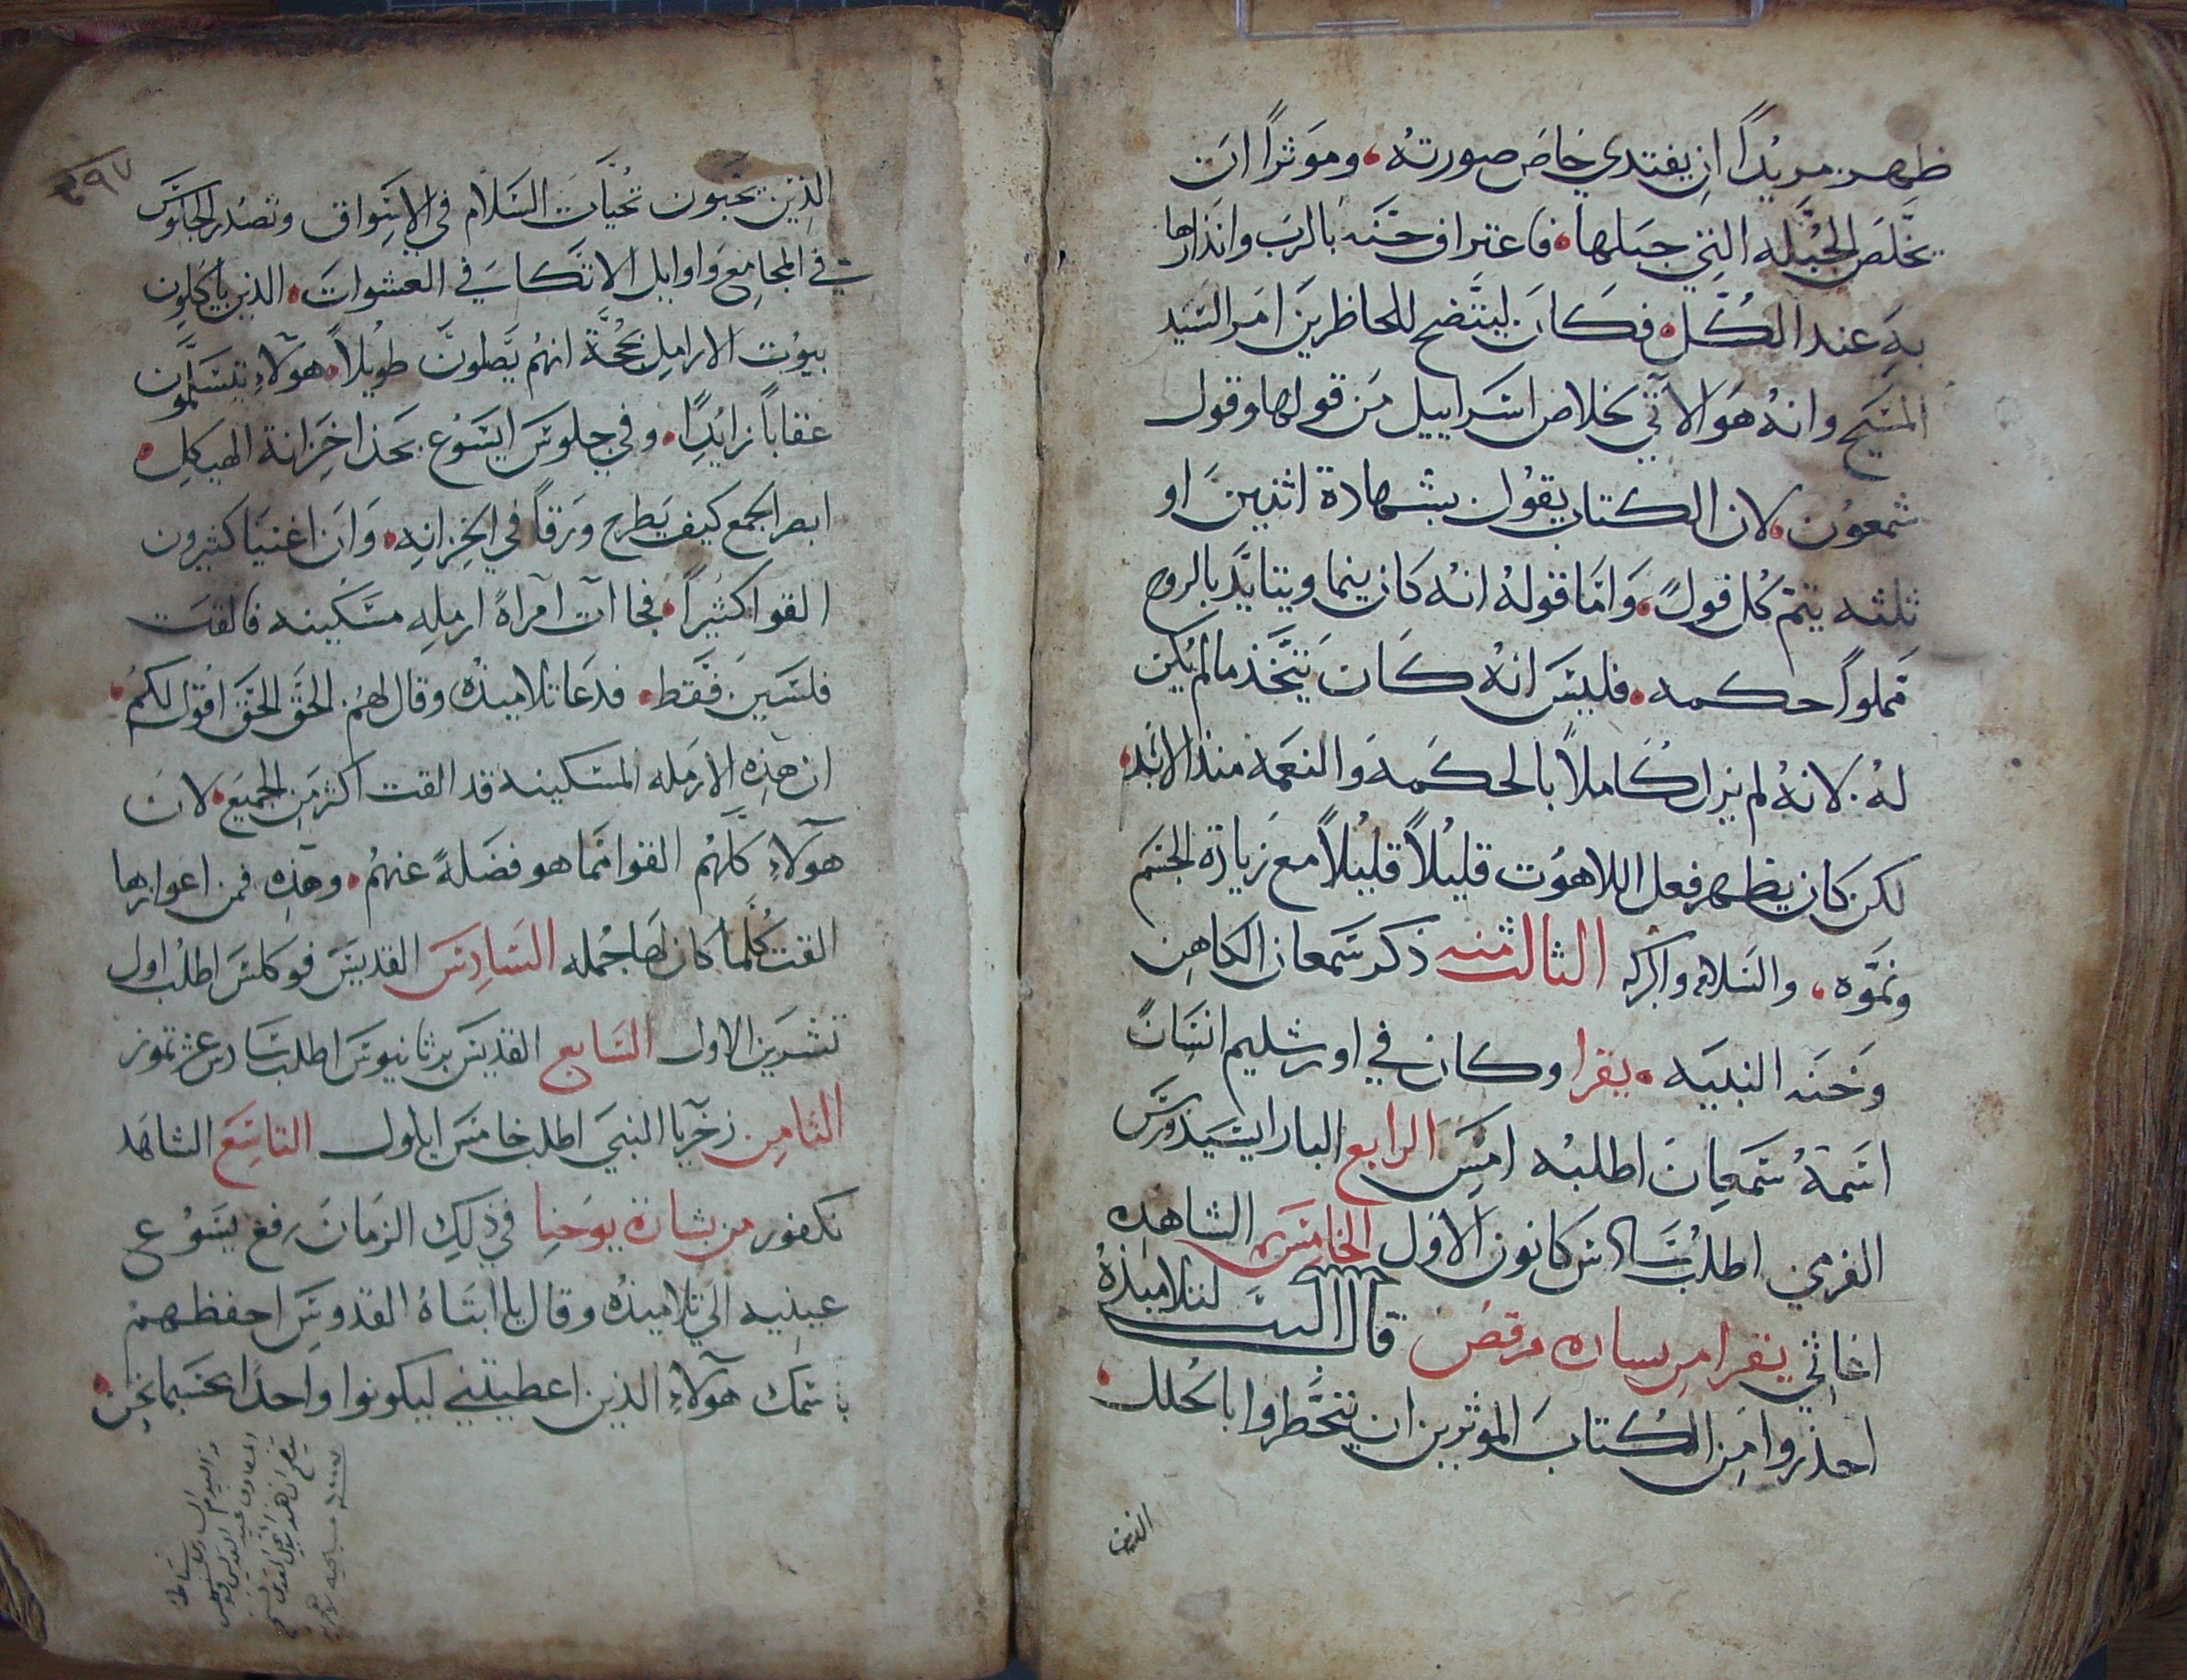 ظهر مريداً ان يفتدي خاص صورته، وموثراً ان
يخلص الجبله التي جبلها، فاعتراف حنه بالرب وانذارها
به عند الكل، فكان ليتضح للحاظرين امر السيد
المسيح وانه هو الاتي بخلاص اسراييل من قولها وقول
شمعون، لان الكتاب يقول بشهادة اثنين او
ثلثه يتم كل قول، واما قوله انه كان ينما ويتايد بالروح
مملواً حكمه، فليس انه كان يتخذ مالم يكن
له، لانه لم يزل كاملاً بالحكمه والنعمه منذ الابد،
لكن كان يظهر فعل اللاهوت قليلاً قليلاً مع زيادة الجسم
ونموه، والسلام والبركه الثالث منه ذكر سمعان الكاهن
وحنه النبيه، يقرا وكان في اورشليم انسان
اسمه سمعان اطلبه امس الرابع البار ايسيدورس
الفرمي اطلب سادس كانون الاول الخامس الشاهده
اغاثي يقرا من بشاره مرقص قال الرب لتلاميذه
احذروا من الكتاب الموثرين ان يتخطروا بالحلل
الذين
٢٩٧
الذين يحبون تحيات السلام في الاسواق وتصدر الجلوس
في المجامع واوايل الاتكاس في العشوات، الذين ياكلون
بيوت الارامل بحجة انهم يصلون طويلاً، هولاء يتسلمون
عقاباً زايداً، وفي جلوس ايسوع بحذا خزانة الهيكل
ابصر الجمع كيف يطرح ورقاً في الخزانه، وان اغنيا كثيرون
القوا كثيراً، فجاات امراة ارمله مسكينه فالقت
فلسين فقط، فدعا تلاميذه وقال لهم الحق الحق اقول لكم،
ان هذه الارمله المسكينه قد القت اكثر من الجميع، لان
هولاء كلهم القوا مما هو فضلة عنهم، وهذه فمن اعوازها
القت كلما كان لها جمله السادس القديس فوكاس اطلب اول
تشرين الاول السابع القديس برثانيوس اطلب سادس عشر تموز
الثامن زخريا النبي اطلب خامس ايلول التاسع الشاهد
نكفور من بشارة يوحنا في ذلك الزمان رفع يسوع
عينيه الى تلاميذه وقال يا ابتاه القدوس احفظهم
باسمك هولاء الذين اعطيتني ليكونوا واحداً بحسبما نحن